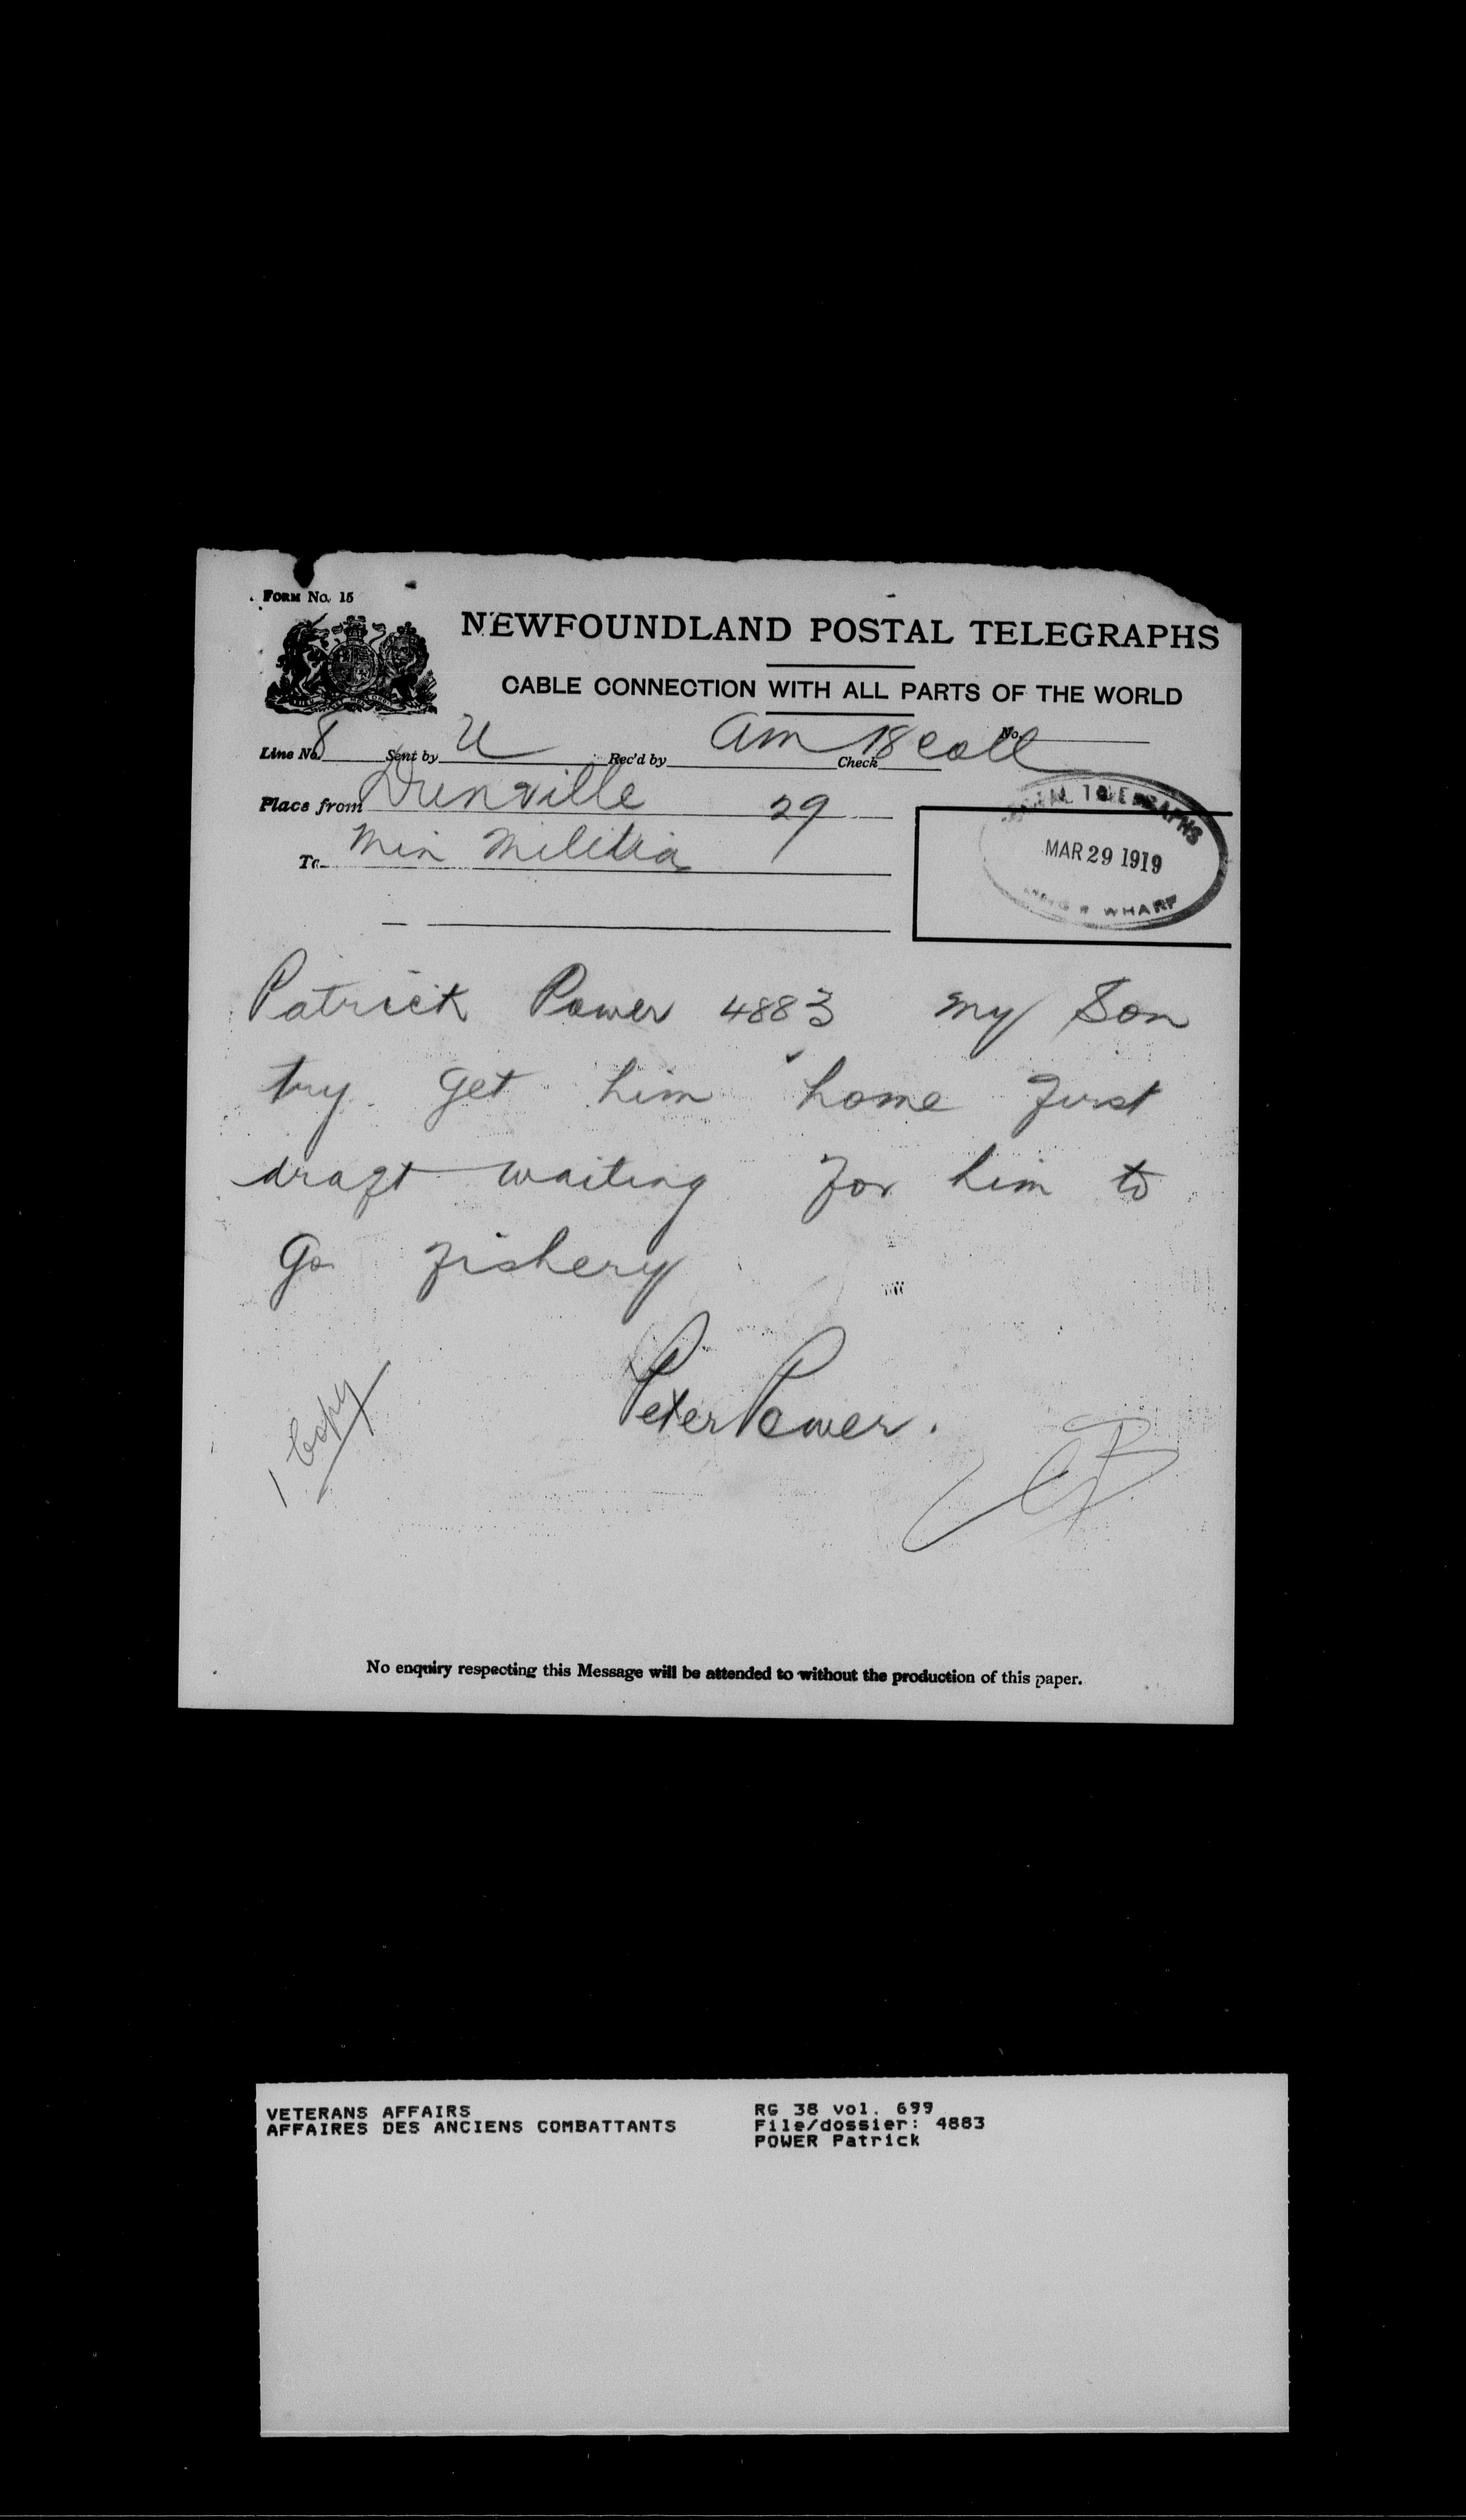 FORM No. 15
NEWFOUNDLAND POSTAL TELEGRAPHS
CABLE CONNECTION WITH ALL PARTS OF THE WORLD
Line No. 8 Sent by Rec'd by am Check 18 coll No.
Place from Dunville 29
To Min Militia
TELEGRAPHS
MAR 29 1919
WHARF
Patrick Power 4883 my Son
try get him home first
draft waiting for him to
go fishery
Peter Power.
1 Copy
No enquiry respecting this Message will be attended to without the production of this paper.
VETERANS AFFAIRS
AFFAIRES DES ANCIENS COMBATTANTS
RG 38 vol. 699
File/dossier: 4883
POWER Patrick